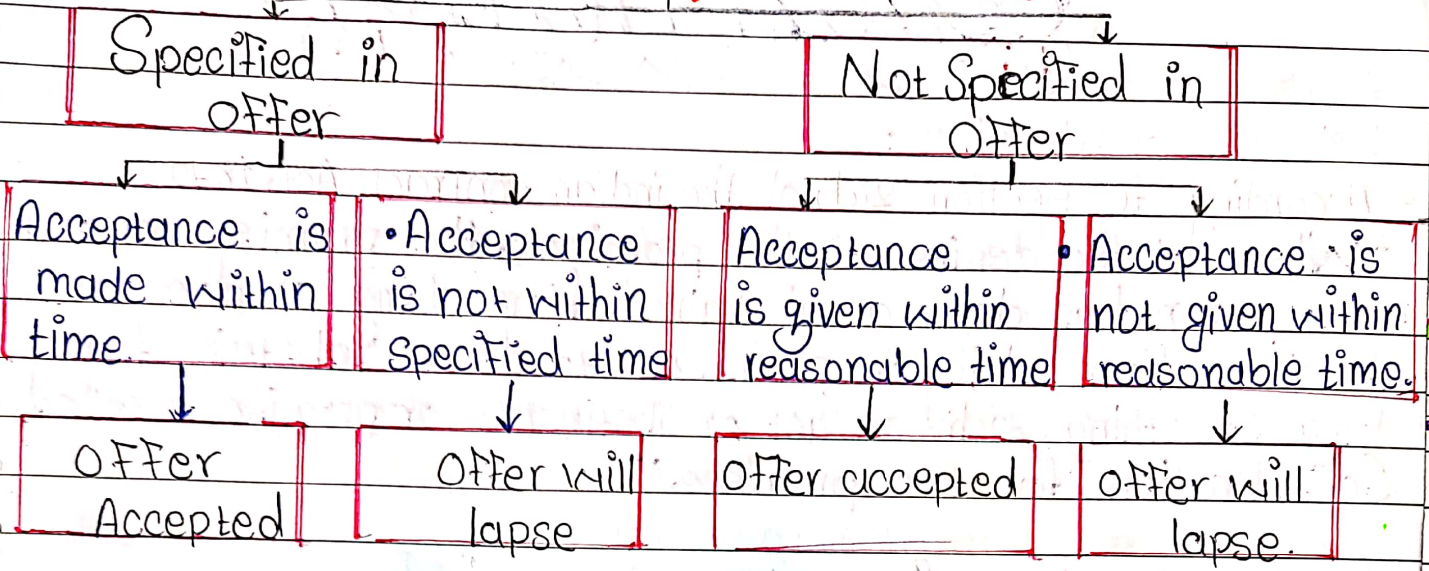 Specified in
offer
Not Specified in
Offer
Acceptance is
made within
time.
• Acceptance
is not within
specified time
Acceptance
is given within
reasonable time
• Acceptance is
not given within
reasonable time.
offer
Accepted
Offer will
lapse
offer accepted
offer will
lapse.